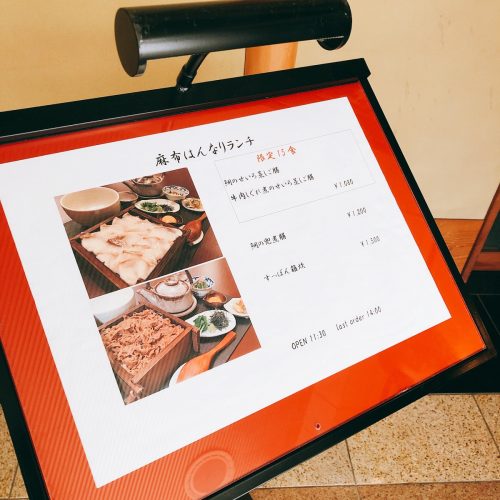 麻布はんなりランチ
限定15食
鯛のせいろ蒸しご膳
牛肉しぐれ煮のせいろ蒸しご膳
¥1,000
¥1,200
鯛の兜煮膳
¥1,300
すっぽん雑炊
OPEN 11:30 last order 14:00